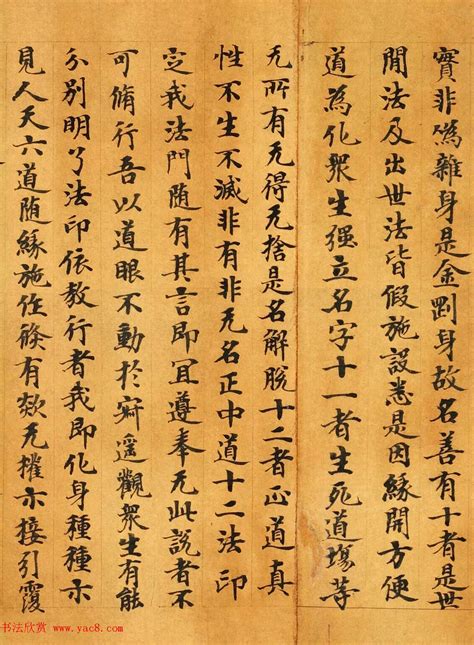 實非僞雜身是金剛身故名善有十者是世
間法及出世法皆假施設悉是因緣開方便
道為化衆生强立名字十一者生死道場等
无所有无得无捨是名解脫十二者正道真
性不生不滅非有非无名正中道十二法印
定我法門随有其言即冝遵奉无此說者不
可脩行吾以道眼不動於寂遥觀衆生有能
分別明了法印依教行者我即化身種種示
見人天六道随緣施作倏有欻无㩲示接引霞
书法欣赏 www.yac8.com